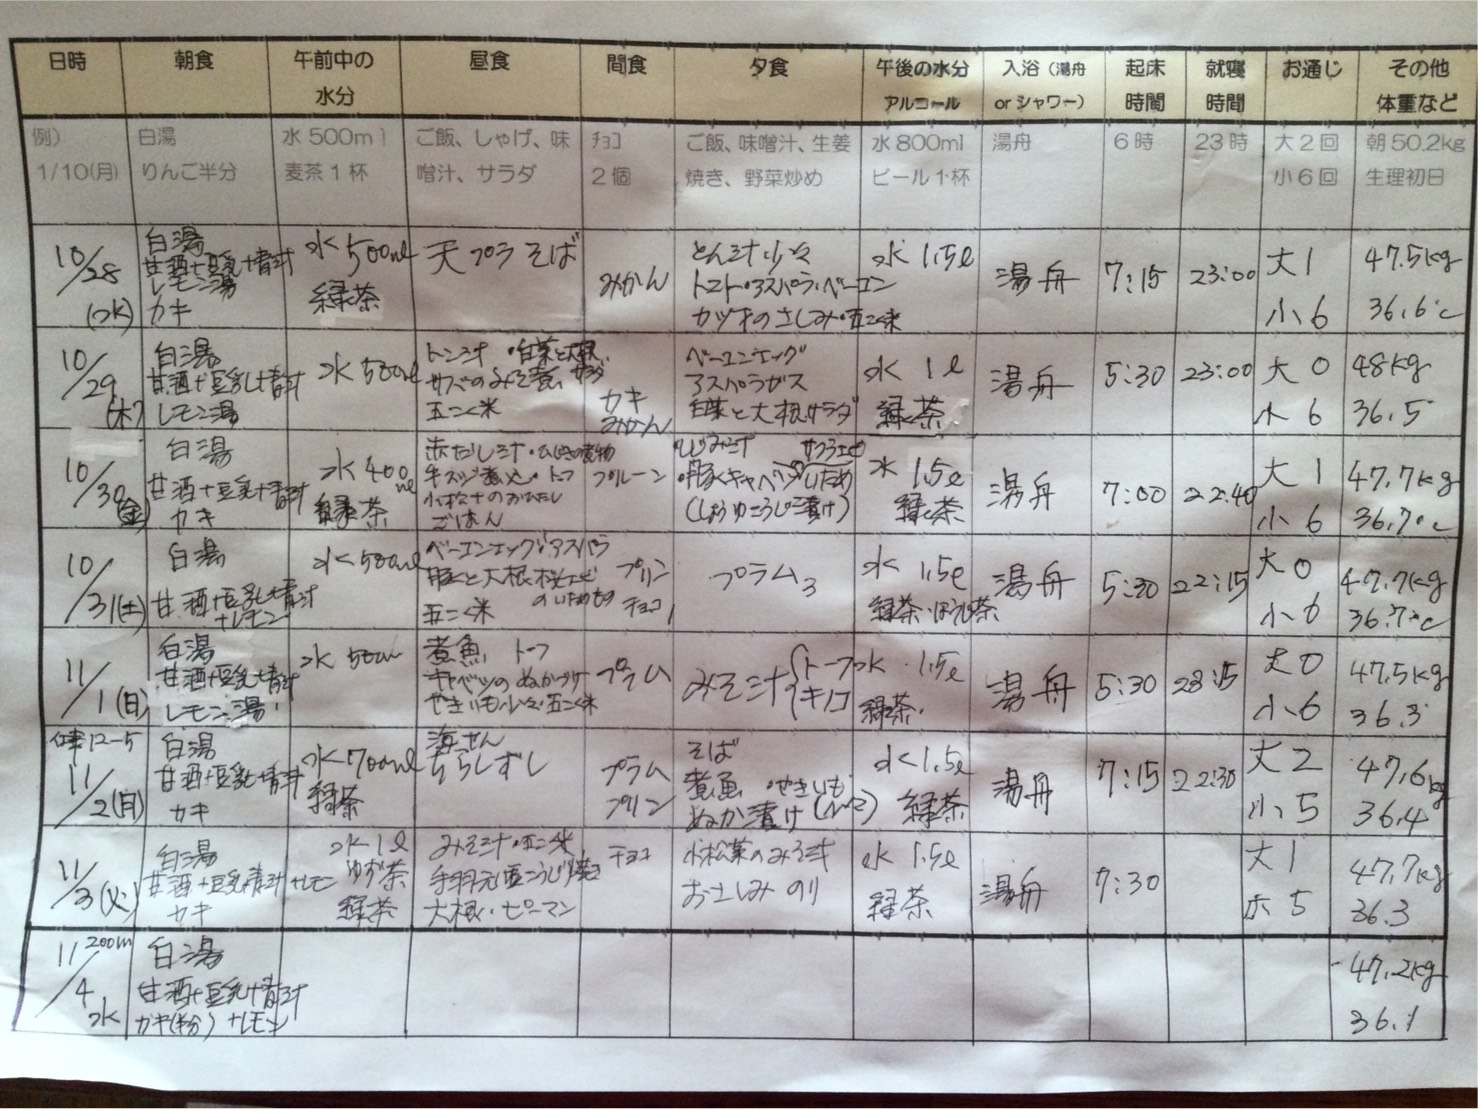 日時 朝食 午前中の 昼食 間食 夕食 午後の水分 入浴（湯舟 起床 就寝 お通じ その他
水分 アルコール orシャワー） 時間 時間 体重など
例） 白湯 水500ml ご飯、しゃげ、味 チョコ ご飯、味噌汁、生姜 水800ml 湯舟 6時 23時 大2回 朝50.2kg
1/10(月) りんご半分 麦茶1杯 噌汁、サラダ 2個 焼き、野菜炒め ビール1杯 小6回 生理初日
10/28 (水)
白湯
甘酒+豆乳+青汁
レモン湯
カキ
水500ml
緑茶
天プラそば
みかん
とん汁少々
トマト・アスパラ・ベーコン
カツオのさしみ・五こく米
水 1.5ℓ
湯舟
7:15
23:00
大1
小6
47.5kg
36.6℃
10/29 (木)
白湯
甘酒+豆乳+青汁
レモン湯
水500ml
トン汁・白菜と大根サラダ
サバのみそ煮
五こく米
カキ
みかん
ベーコンエッグ
アスパラガス
白菜と大根サラダ
水 1ℓ
緑茶
湯舟
5:30
23:00
大0
小6
48kg
36.5
10/30 (金)
白湯
甘酒+豆乳+青汁
カキ
水400ml
緑茶
赤だし汁・ひじきの煮物
牛スジ煮込・トーフ
小松ナのおひたし
ごはん
プルーン
しじみ汁
サクラエビ
・豚くキャベツいため
(しょうゆこうじ漬け)
水 1.5ℓ
緑茶
湯舟
7:00
22:40
大1
小6
47.7kg
36.7℃
10/31(土)
白湯
甘酒+豆乳+青汁
+レモン
水500ml
ベーコンエッグ・アスパラ
豚と大根
のいためもの
五こく米
プリン
チョコ1
プラム3
水 1.5ℓ
緑茶・ほうじ茶
湯舟
5:30
22:15
大0
小6
47.7kg
36.7℃
11/1(日)
白湯
甘酒+豆乳+青汁
レモン湯
水500ml
煮魚 トーフ
キャベツのぬかづけ
やきいも少々・五こく米
プラム
みそ汁{トーフ
キノコ
水 1.5ℓ
緑茶
湯舟
5:30
大0
小6
47.5kg
36.3
仕事12-5
11/2(月)
白湯
甘酒+豆乳+青汁
カキ
水700ml
緑茶
海せん
ちらしずし
プラム
プリン
そば
煮魚 ・やきいも
ぬか漬け
水1.5ℓ
緑茶
湯舟
7:15
22:30
大2
小5
47.6kg
36.4
11/3(火)
白湯
甘酒+豆乳+青汁+レモン
カキ
水1ℓ
ゆず茶
緑茶
みそ汁・五こく米
手羽元塩こうじ焼き
大根・ピーマン
チョコ
小松菜のみそ汁
おさしみ のり
水 1.5ℓ
緑茶
湯舟
7:30
大1
小5
47.7kg
36.3
11/4 水
白湯
甘酒+豆乳+青汁
+レモン
47.2kg
36.1